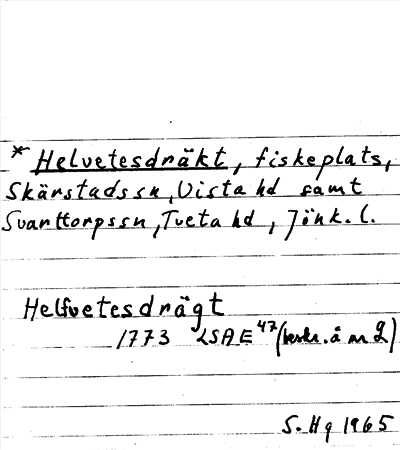 * Helvetesdräkt, fiskeplats,
Skärstads sn, Vista hd samt
Svarttorps sn, Tveta hd, Jönk. l.
Helfvetesdrägt
1773 LSA E 47 (
S. Hg 1965